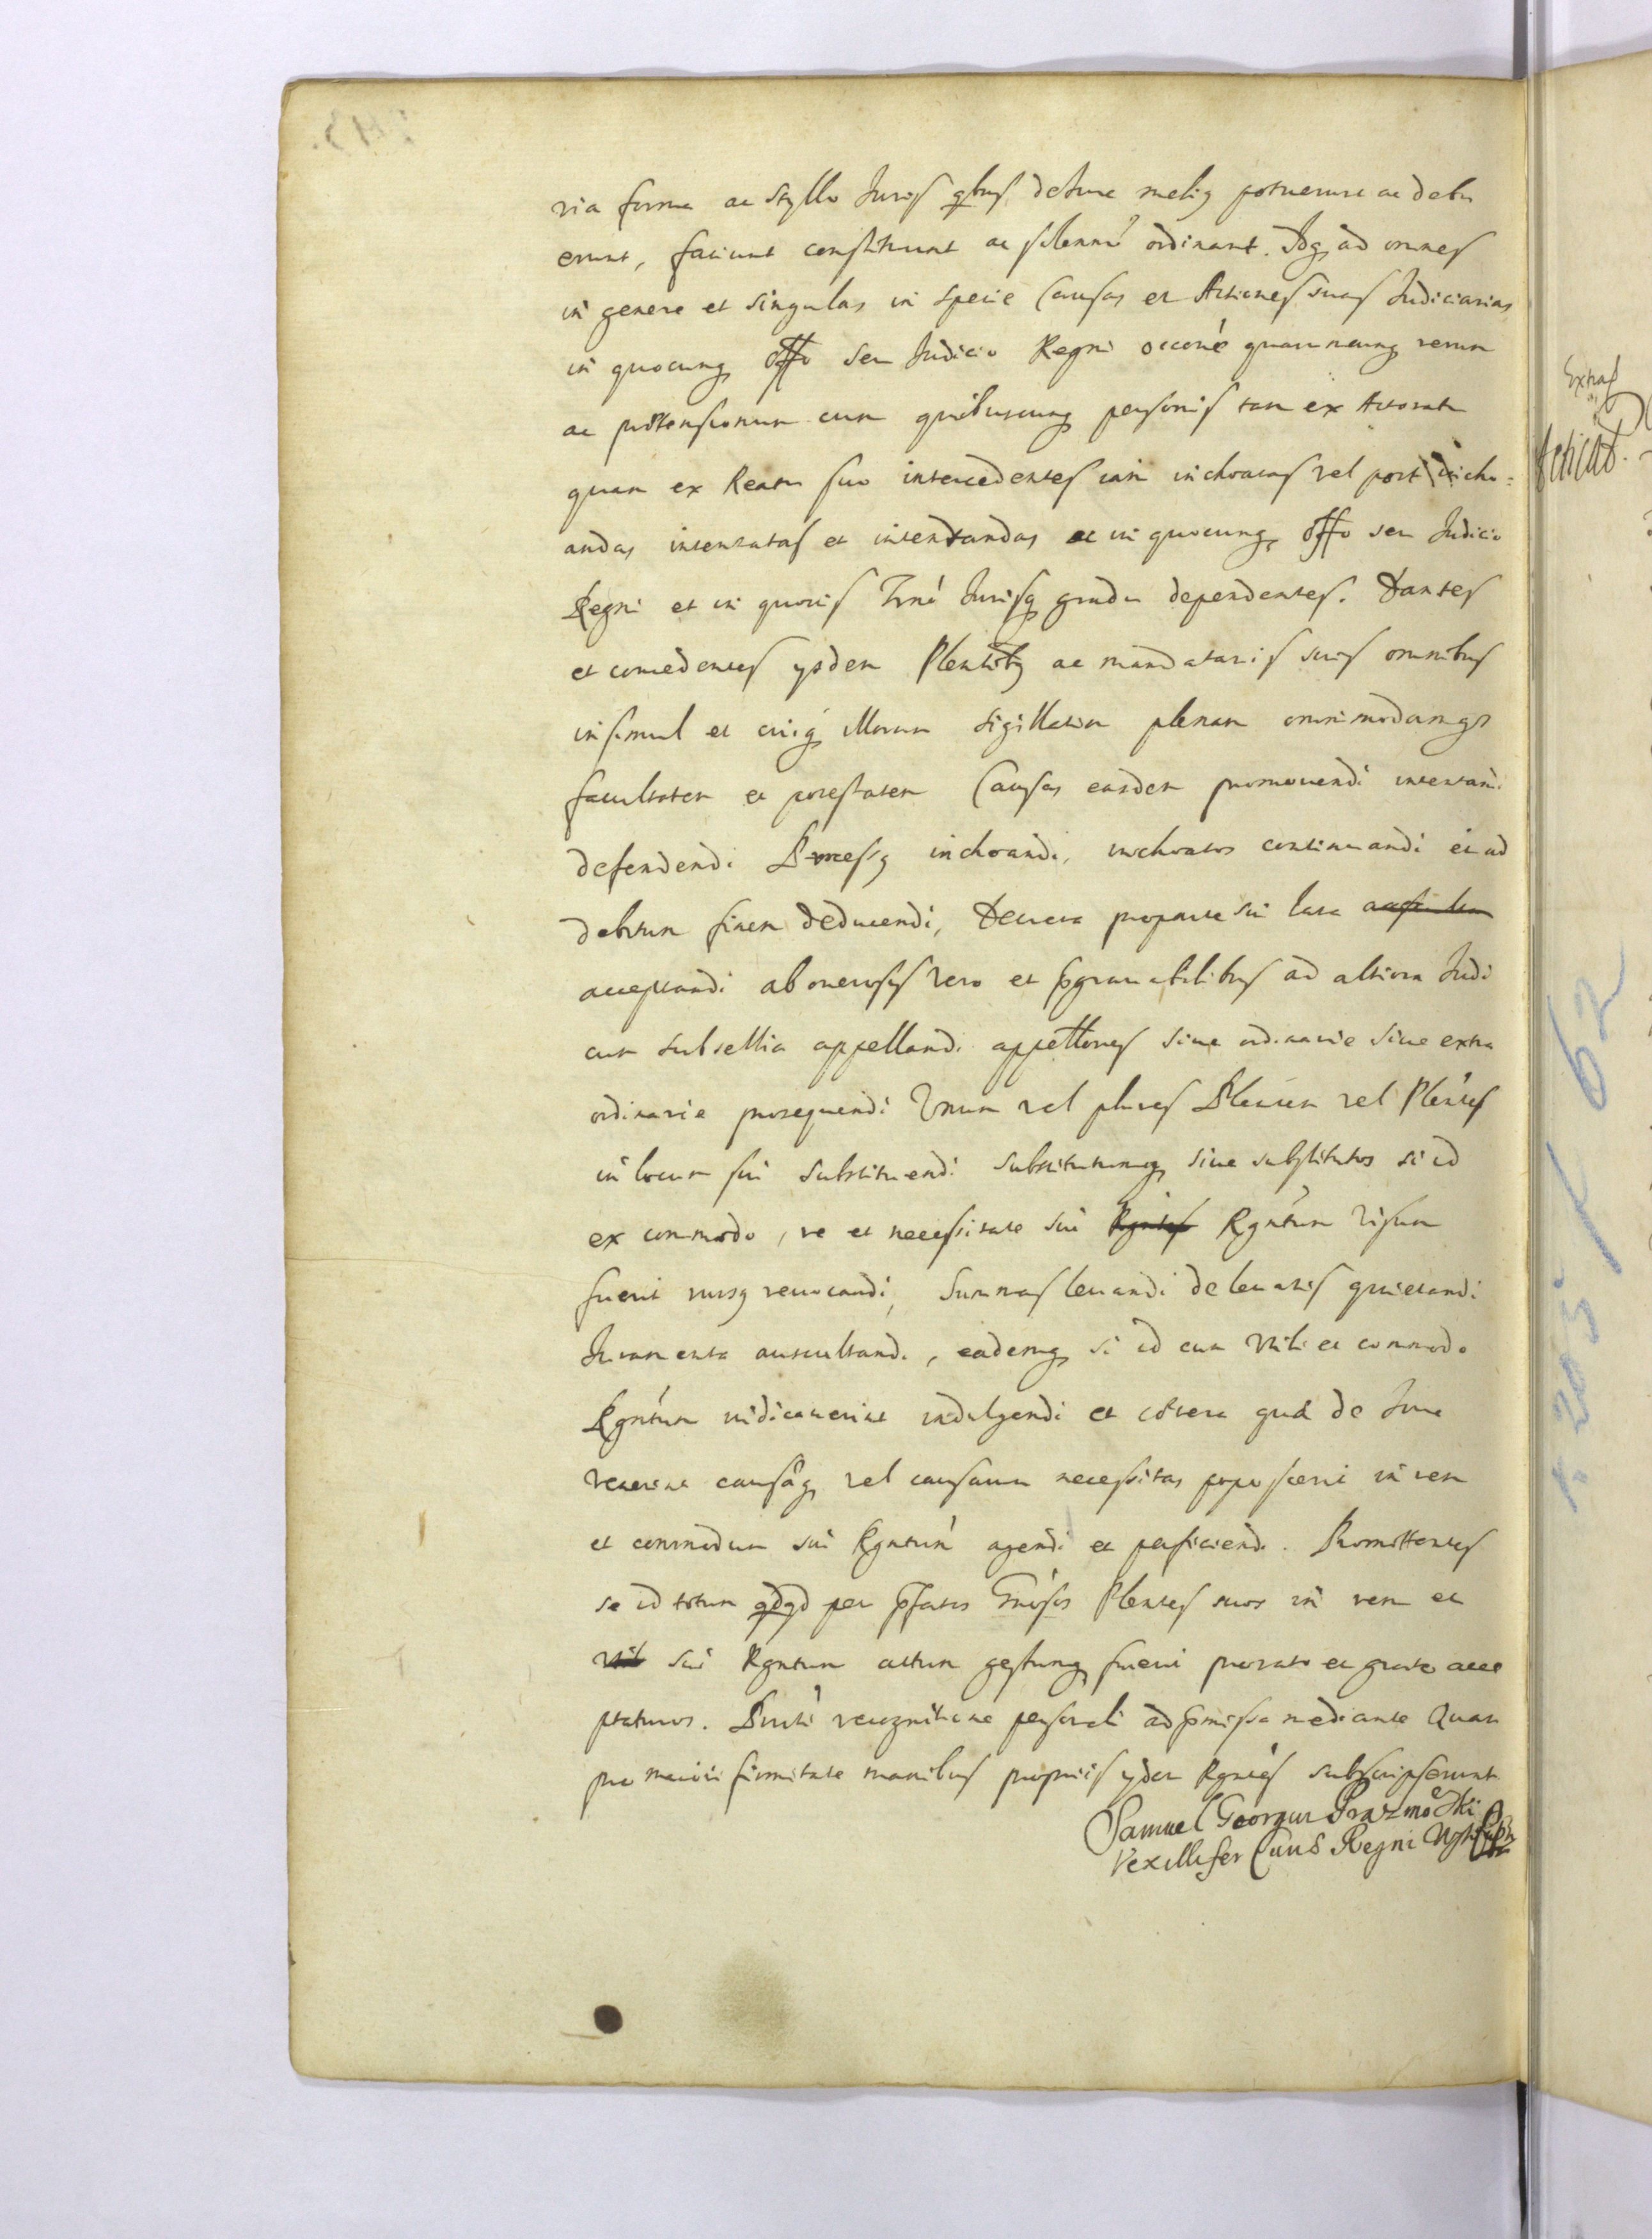 ria forma ac styllo Juris qbus de Jure meliq potuerunt ac debu
erunt, faciunt constituunt ac solenni ordinant. Idq ad omnes
in genere et singulas in specie Causas et Actiones suas Judiciarias
in quocunq Offo seu Judicio Regni occone quarumcunq rerum
ac prætensionum cum quibuscunq personis tam ex Actoratu
quam ex Reatu suo intercedentes iam inchoatas vel post incho=
andas intentatas et intentandas ac in quocunq Offo seu Judicio
Regni et in quovis Trni Jurisq gradu dependentes. Dantes
et concedentes ysdem Plentibq ac mandatariis suis omnibus
insimul et cuiq illorum sigillatim plenam omnimodamq
facultatem et potestatem Causas easdem promouendi intentandi
defendendi Processq inchoandi, inchoatos continuandi et ad
debitum finem deducendi, Decreta pro parte sui lata
acceptandi ab onerosis vero et pgrauabilibus ad altiora Judi
cum subsellia appellandi appettones siue ordinarie siue extra
ordinarie prosequendi Vnum vel plures Plentem vel Plentes
in locum sui substituendi substitutumq siue substitutos si id
ex commodo, re et necessitate sui Rgntum visum
fuerit rursq reuocandi, Summas leuandi de leuatis quietandi
Juramenta auscultandi, eademq si id cum Vtili et commodo
Rgntum iudicauerint indulgendi et cætera quæ de Jure
venerint causaq vel causarum necessitas poposcerit in rem
et commodum sui Rgntum agendi et perficiendi. Promittentes
se id totum qdqd per pfatos Gnosos Plentes suos in rem et
sui Rgntum actum gestumq fuerit pro rato et grato acce
ptaturos. Prnti recognitione personali ad pmissa mediante Quam
pro maiori firmitate manibus propriis ydem Rgntes subscripserunt
Samuel Georgius Prazmowski
Vexillifer Regni
Extras
t. 205 / 62